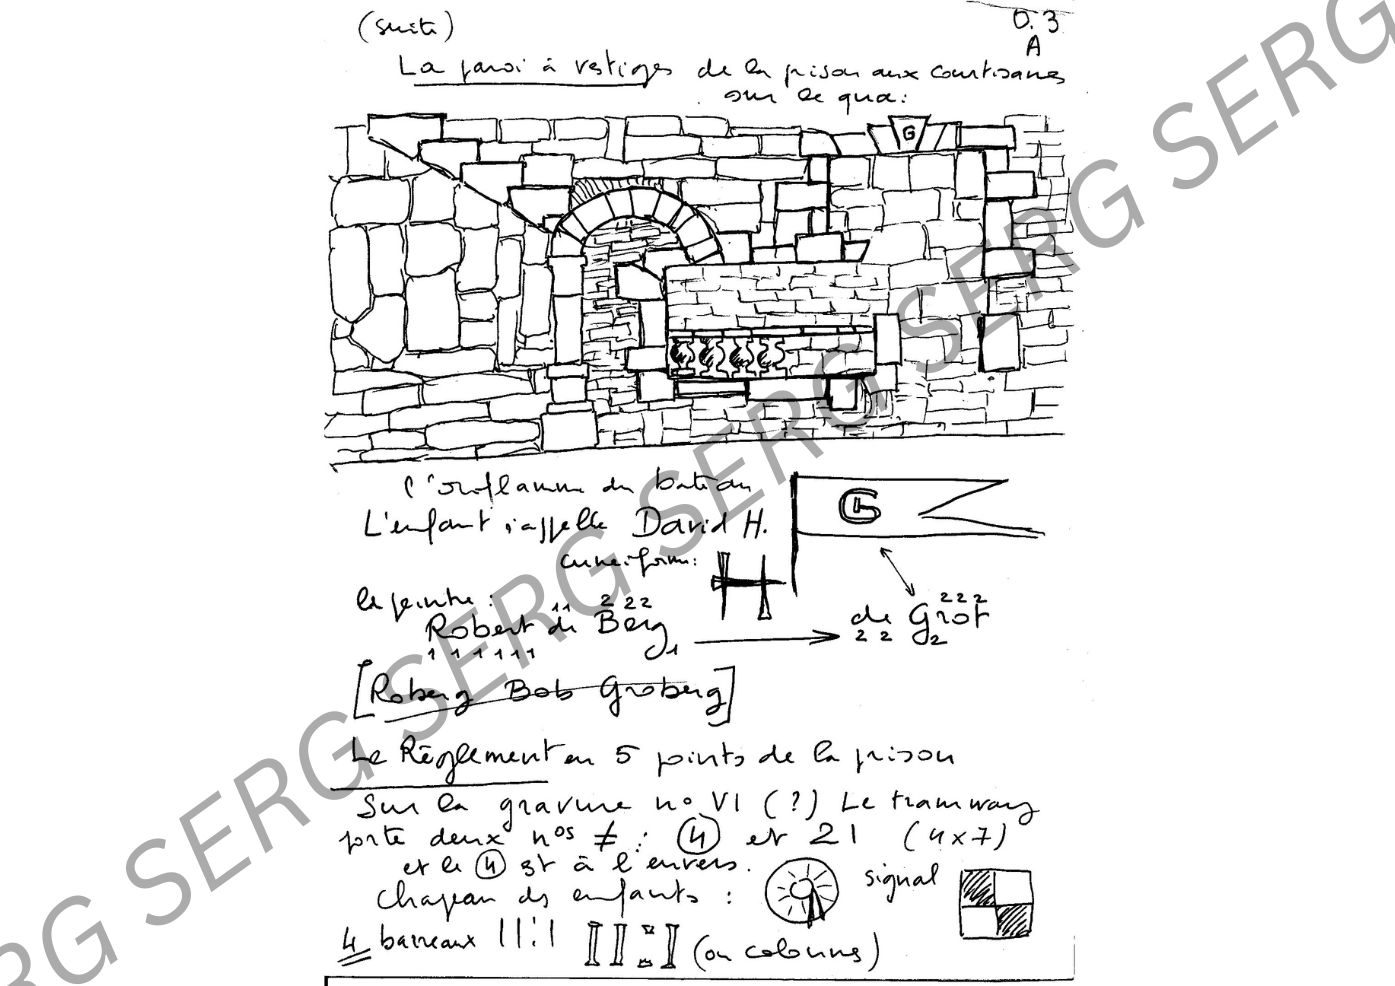 (suite)
D.3
A
La paroi à vestiges de la prison aux courtisanes
sur le quai
G
L'oriflamme du bateau
G
L'enfant s'appelle David H.
cuneiform:
le peintre :
11 222
Robert de Berg
111111 1
222
de Grot
22 2
[Roberg Bob Groberg]
Le Règlement en 5 points de la prison
Sur la gravure n° VI (?) Le tramway
porte deux nos ≠ : 4 et 21 (4x7)
et le 4 est à l'envers.
Chapeau des enfants :
signal
4 barreaux (ou colonnes)
SERG SERG SERG SERG SERG SERG SERG